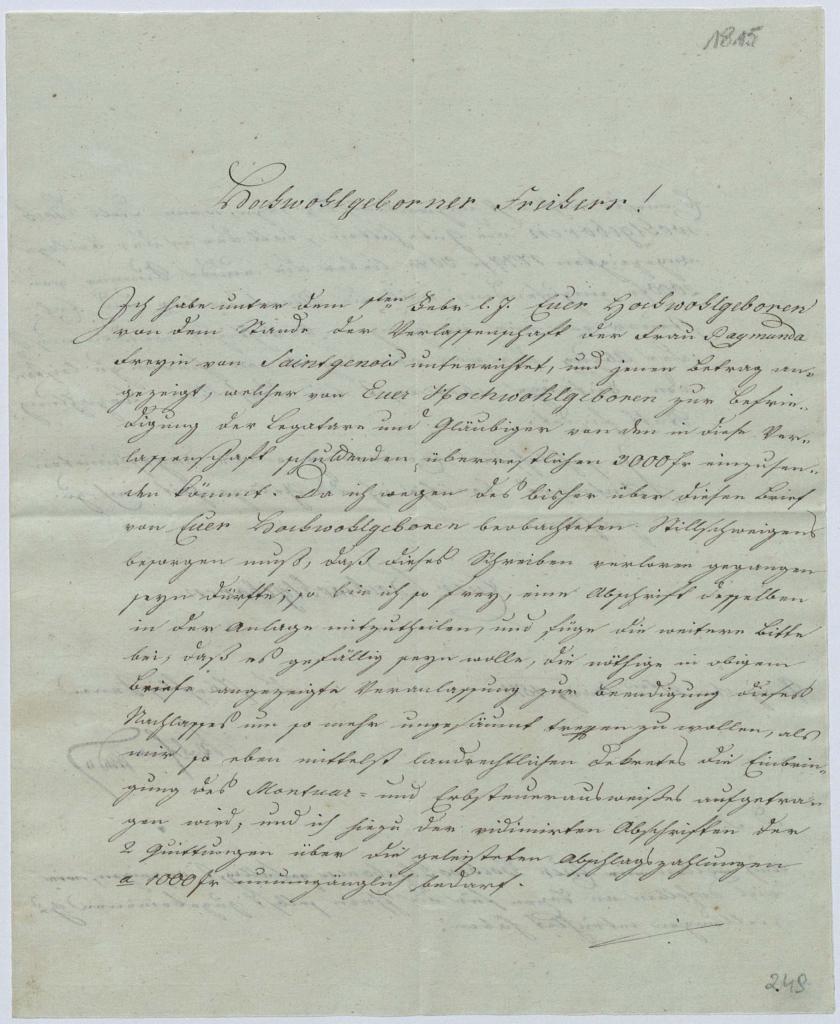 1815
Hochwohlgeborner Freiherr!
Ich habe unter dem ten Febr l. J. Euer Hochwohlgeboren
von dem Stande der Verlassenschaft der Frau Raymunda
Freyin von Saintgenois unterrichtet, und jenen Betrag an-
gezeigt, welcher von Euer Hochwohlgeboren zur Befrie-
digung der Legatare und Gläubiger von den in diese Ver-
lassenschaft schuldenden überrestlichen 3000 fr einzusen-
den kömmt. Da ich wegen des bisher über diesen Brief
von Euer Hochwohlgeboren beobachteten Stillschweigens
besorgen muß, daß dieses Schreiben verloren gegangen
seyn dürfte; so bin ich so frey, eine Abschrift desselben
in der Anlage mitzutheilen, und füge die weitere Bitte
bei, daß es gefällig seyn wolle, die nöthige in obigem
Briefe angezeigte Veranlassung zur Beendigung dieses
Nachlasses um so mehr ungesäumt treffen zu wollen, als
mir so eben mittelst landrechtlichen Dekretes die Einbrin-
gung des Mortuar- und Erbsteuerausweißes aufgetra-
gen wird, und ich hiezu der vidimirten Abschriften der
2 Quittungen über die geleisteten Abschlagszahlungen
a 1000 fr unumgänglich bedarf.
249